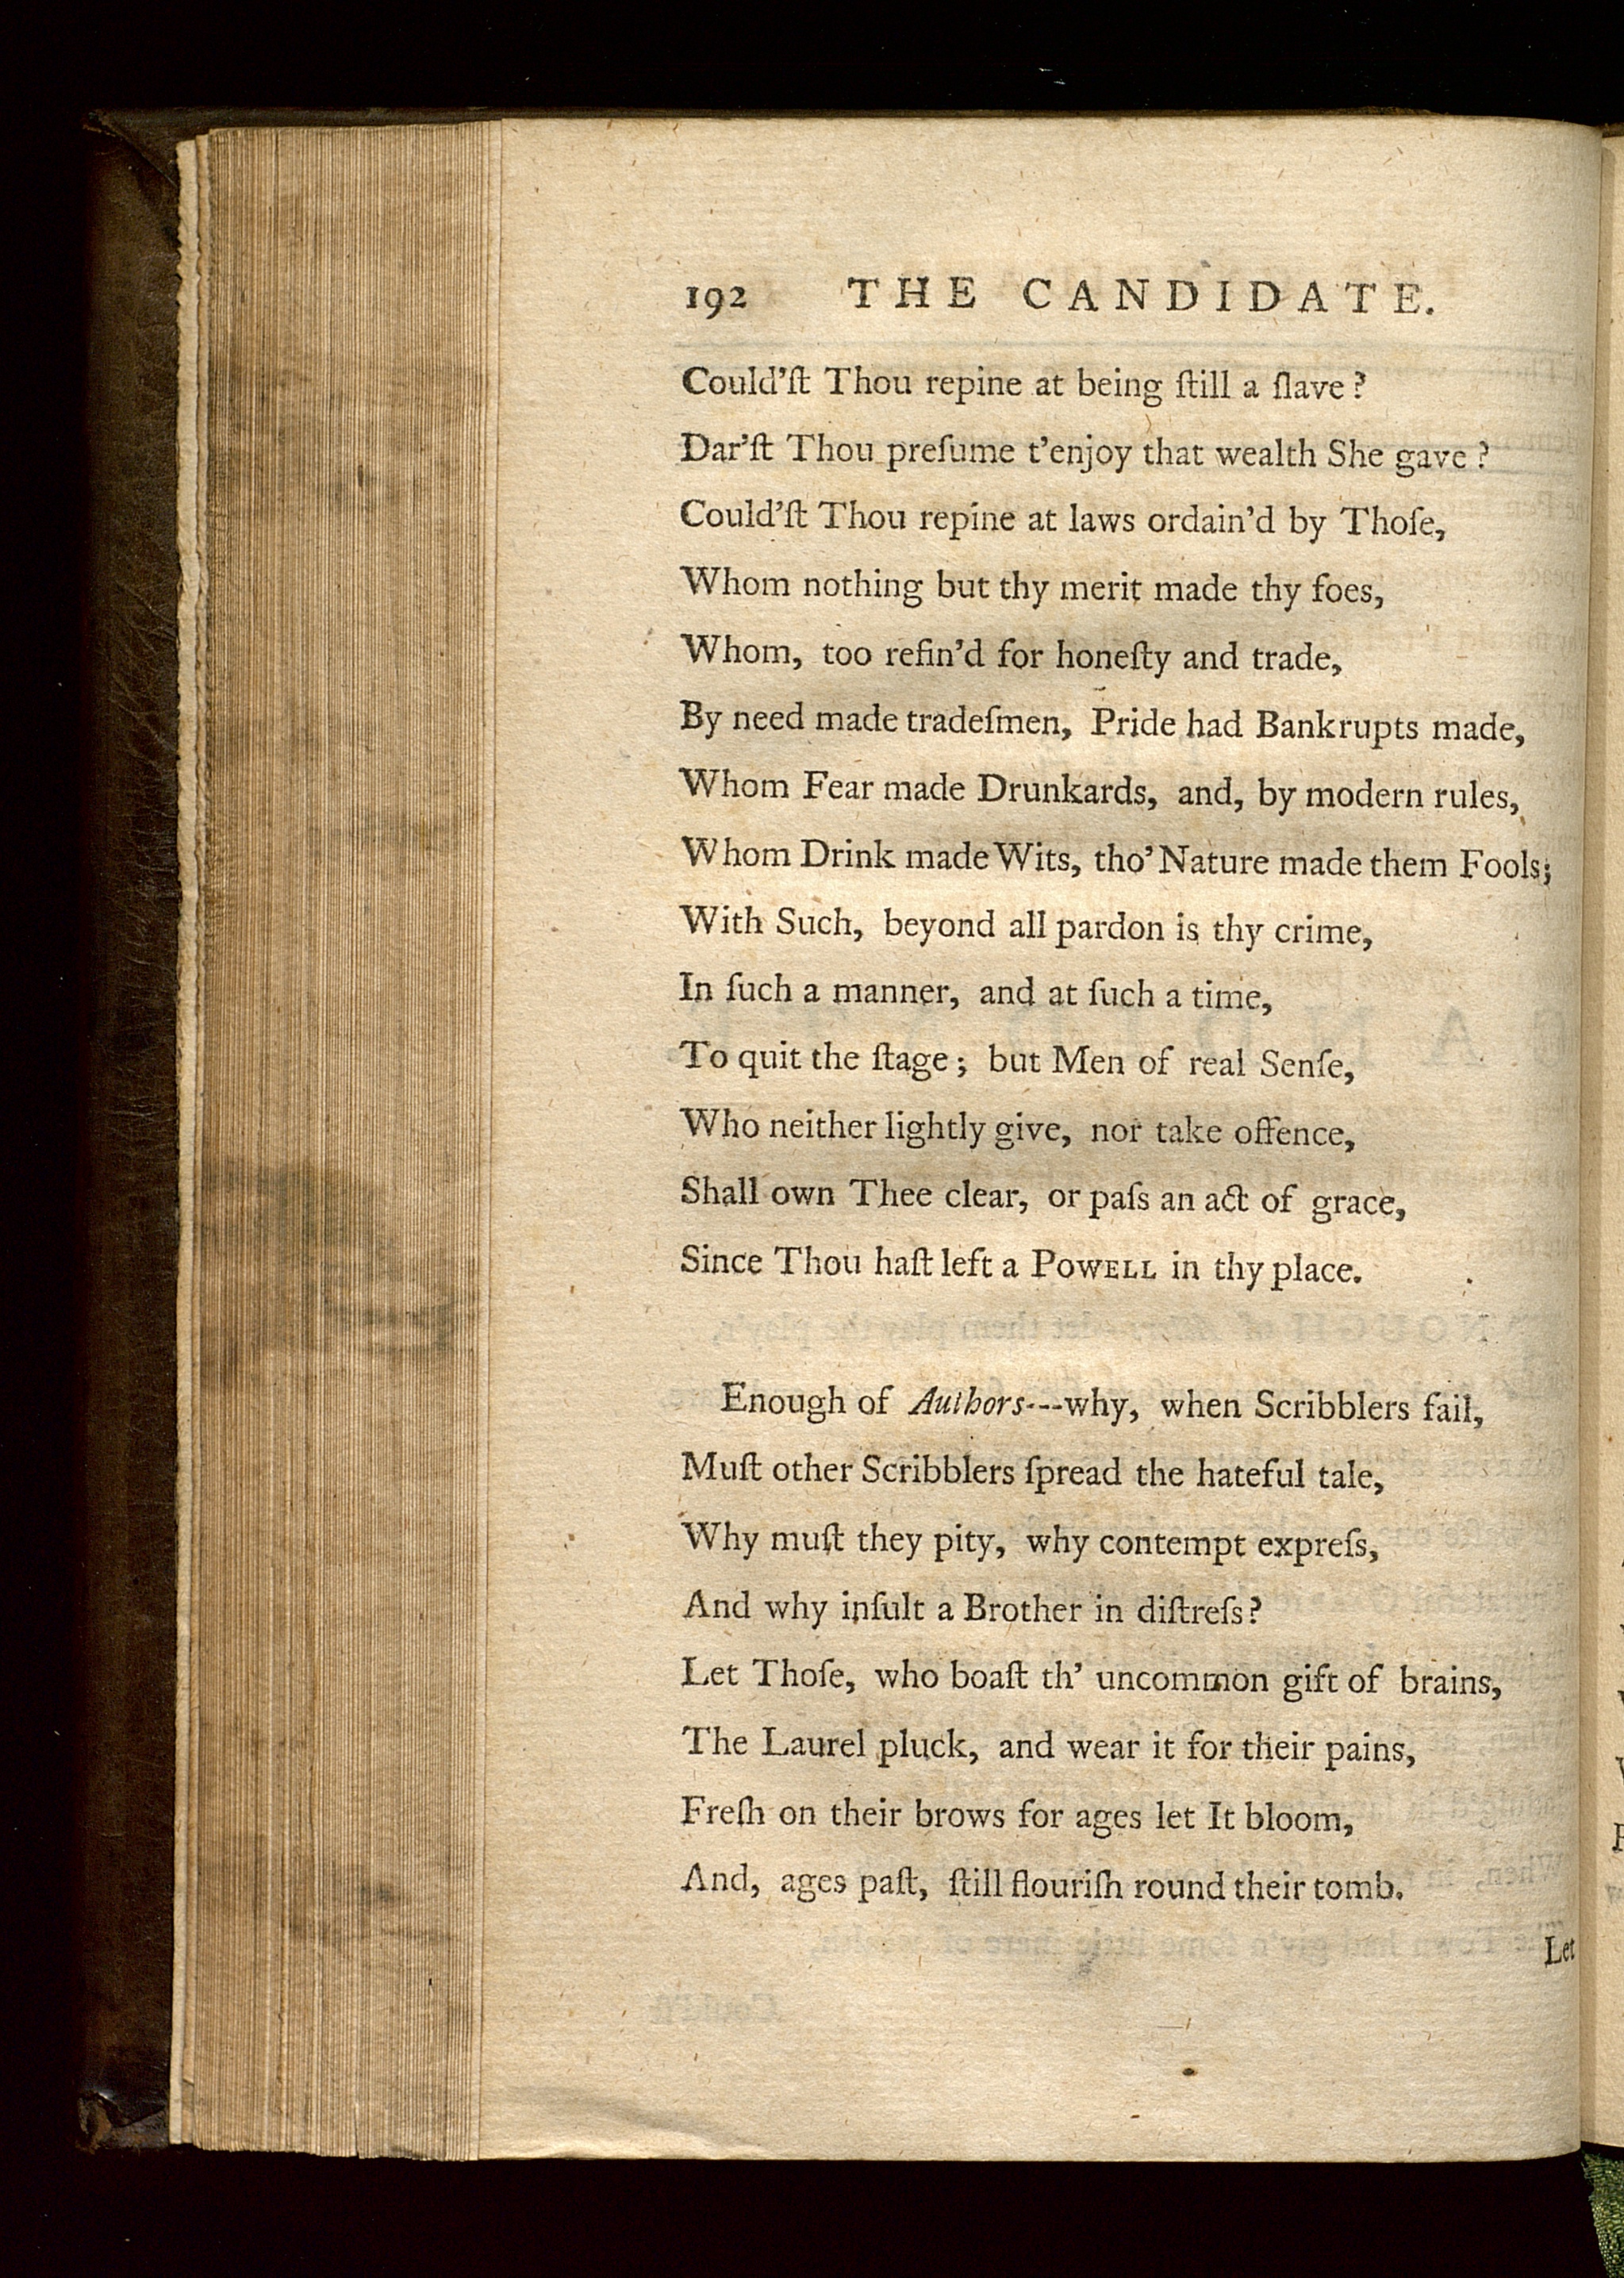 192 THE CANDIDATE.
Could'ſt Thou repine at being ſtill a ſlave?
Dar'ſt Thou preſume t'enjoy that wealth She gave?
Could'ſt Thou repine at laws ordain'd by Thoſe,
Whom nothing but thy merit made thy foes,
Whom, too refin'd for honeſty and trade,
By need made tradeſmen, Pride had Bankrupts made,
Whom Fear made Drunkards, and, by modern rules,
Whom Drink made Wits, tho' Nature made them Fools;
With Such, beyond all pardon is thy crime,
In ſuch a manner, and at ſuch a time,
To quit the ſtage; but Men of real Senſe,
Who neither lightly give, nor take offence,
Shall own Thee clear, or paſs an act of grace,
Since Thou haſt left a POWELL in thy place.
Enough of Authors---why, when Scribblers fail,
Muſt other Scribblers ſpread the hateful tale,
Why muſt they pity, why contempt expreſs,
And why inſult a Brother in diſtreſs?
Let Thoſe, who boaſt th' uncommon gift of brains,
The Laurel pluck, and wear it for their pains,
Freſh on their brows for ages let It bloom,
And, ages paſt, ſtill flouriſh round their tomb.
Let